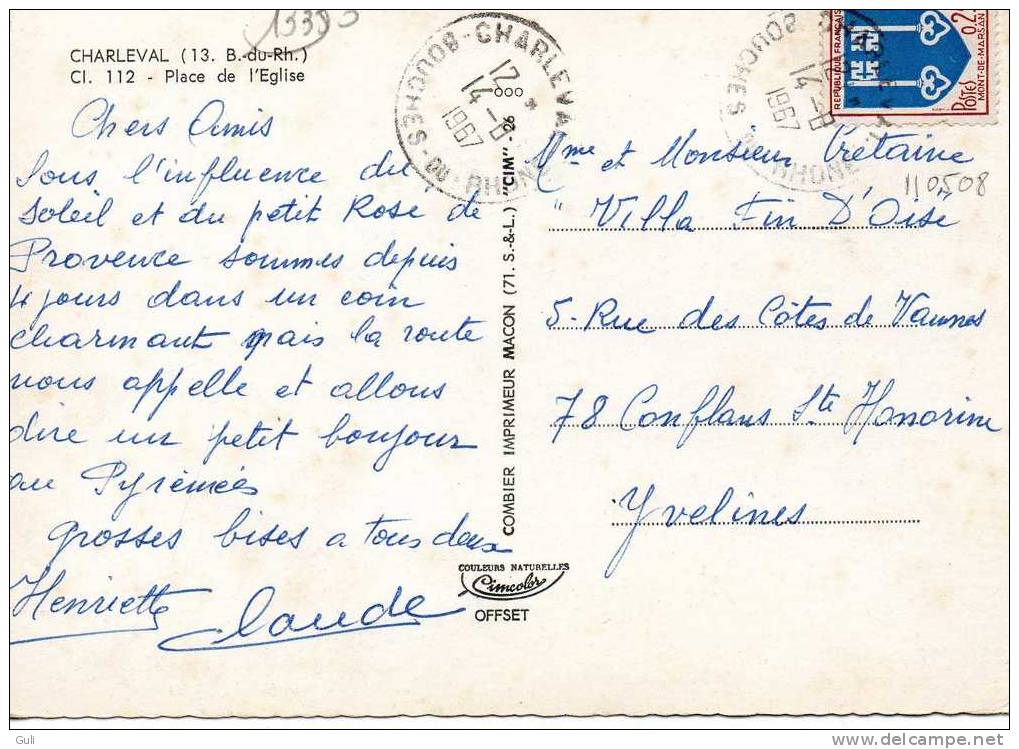 15393
CHARLEVAL (13. B.-du-Rh.)
Cl. 112 - Place de l'Eglise
Chers Amis
Sous l'influence du
Soleil et du petit Rosé de
Provence sommes depuis
4 jours dans un coin
charmant mais la route
nous appelle et allons
dire un petit bonjour
au Pyrénées
grosses bises a tous deux
Henriette
Claude
COMBIER IMPRIMEUR MACON (71. S.-&-L.) "CIM" - 26
COULEURS NATURELLES
Cimcolor
OFFSET
CHARLEVAL
BOUCHES-DU-RHONE
12 H
14 - 8
1967
REPUBLIQUE FRANÇAISE
POSTES
MONT-DE-MARSAN
BOUCHES
RHONE
14 - 8
1967
110508
Mme et Monsieur Tretaine
"Villa Fin D'Oise"
5 - Rue des Côtes de Vannes
78 Conflans Ste Honorine
Yvelines
Guli
http://www.delcampe.net